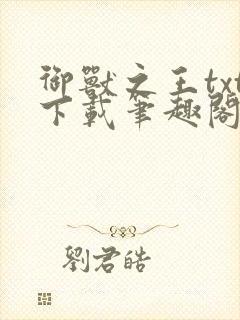 御獸之王txt
下載筆趣閣
劉君皓